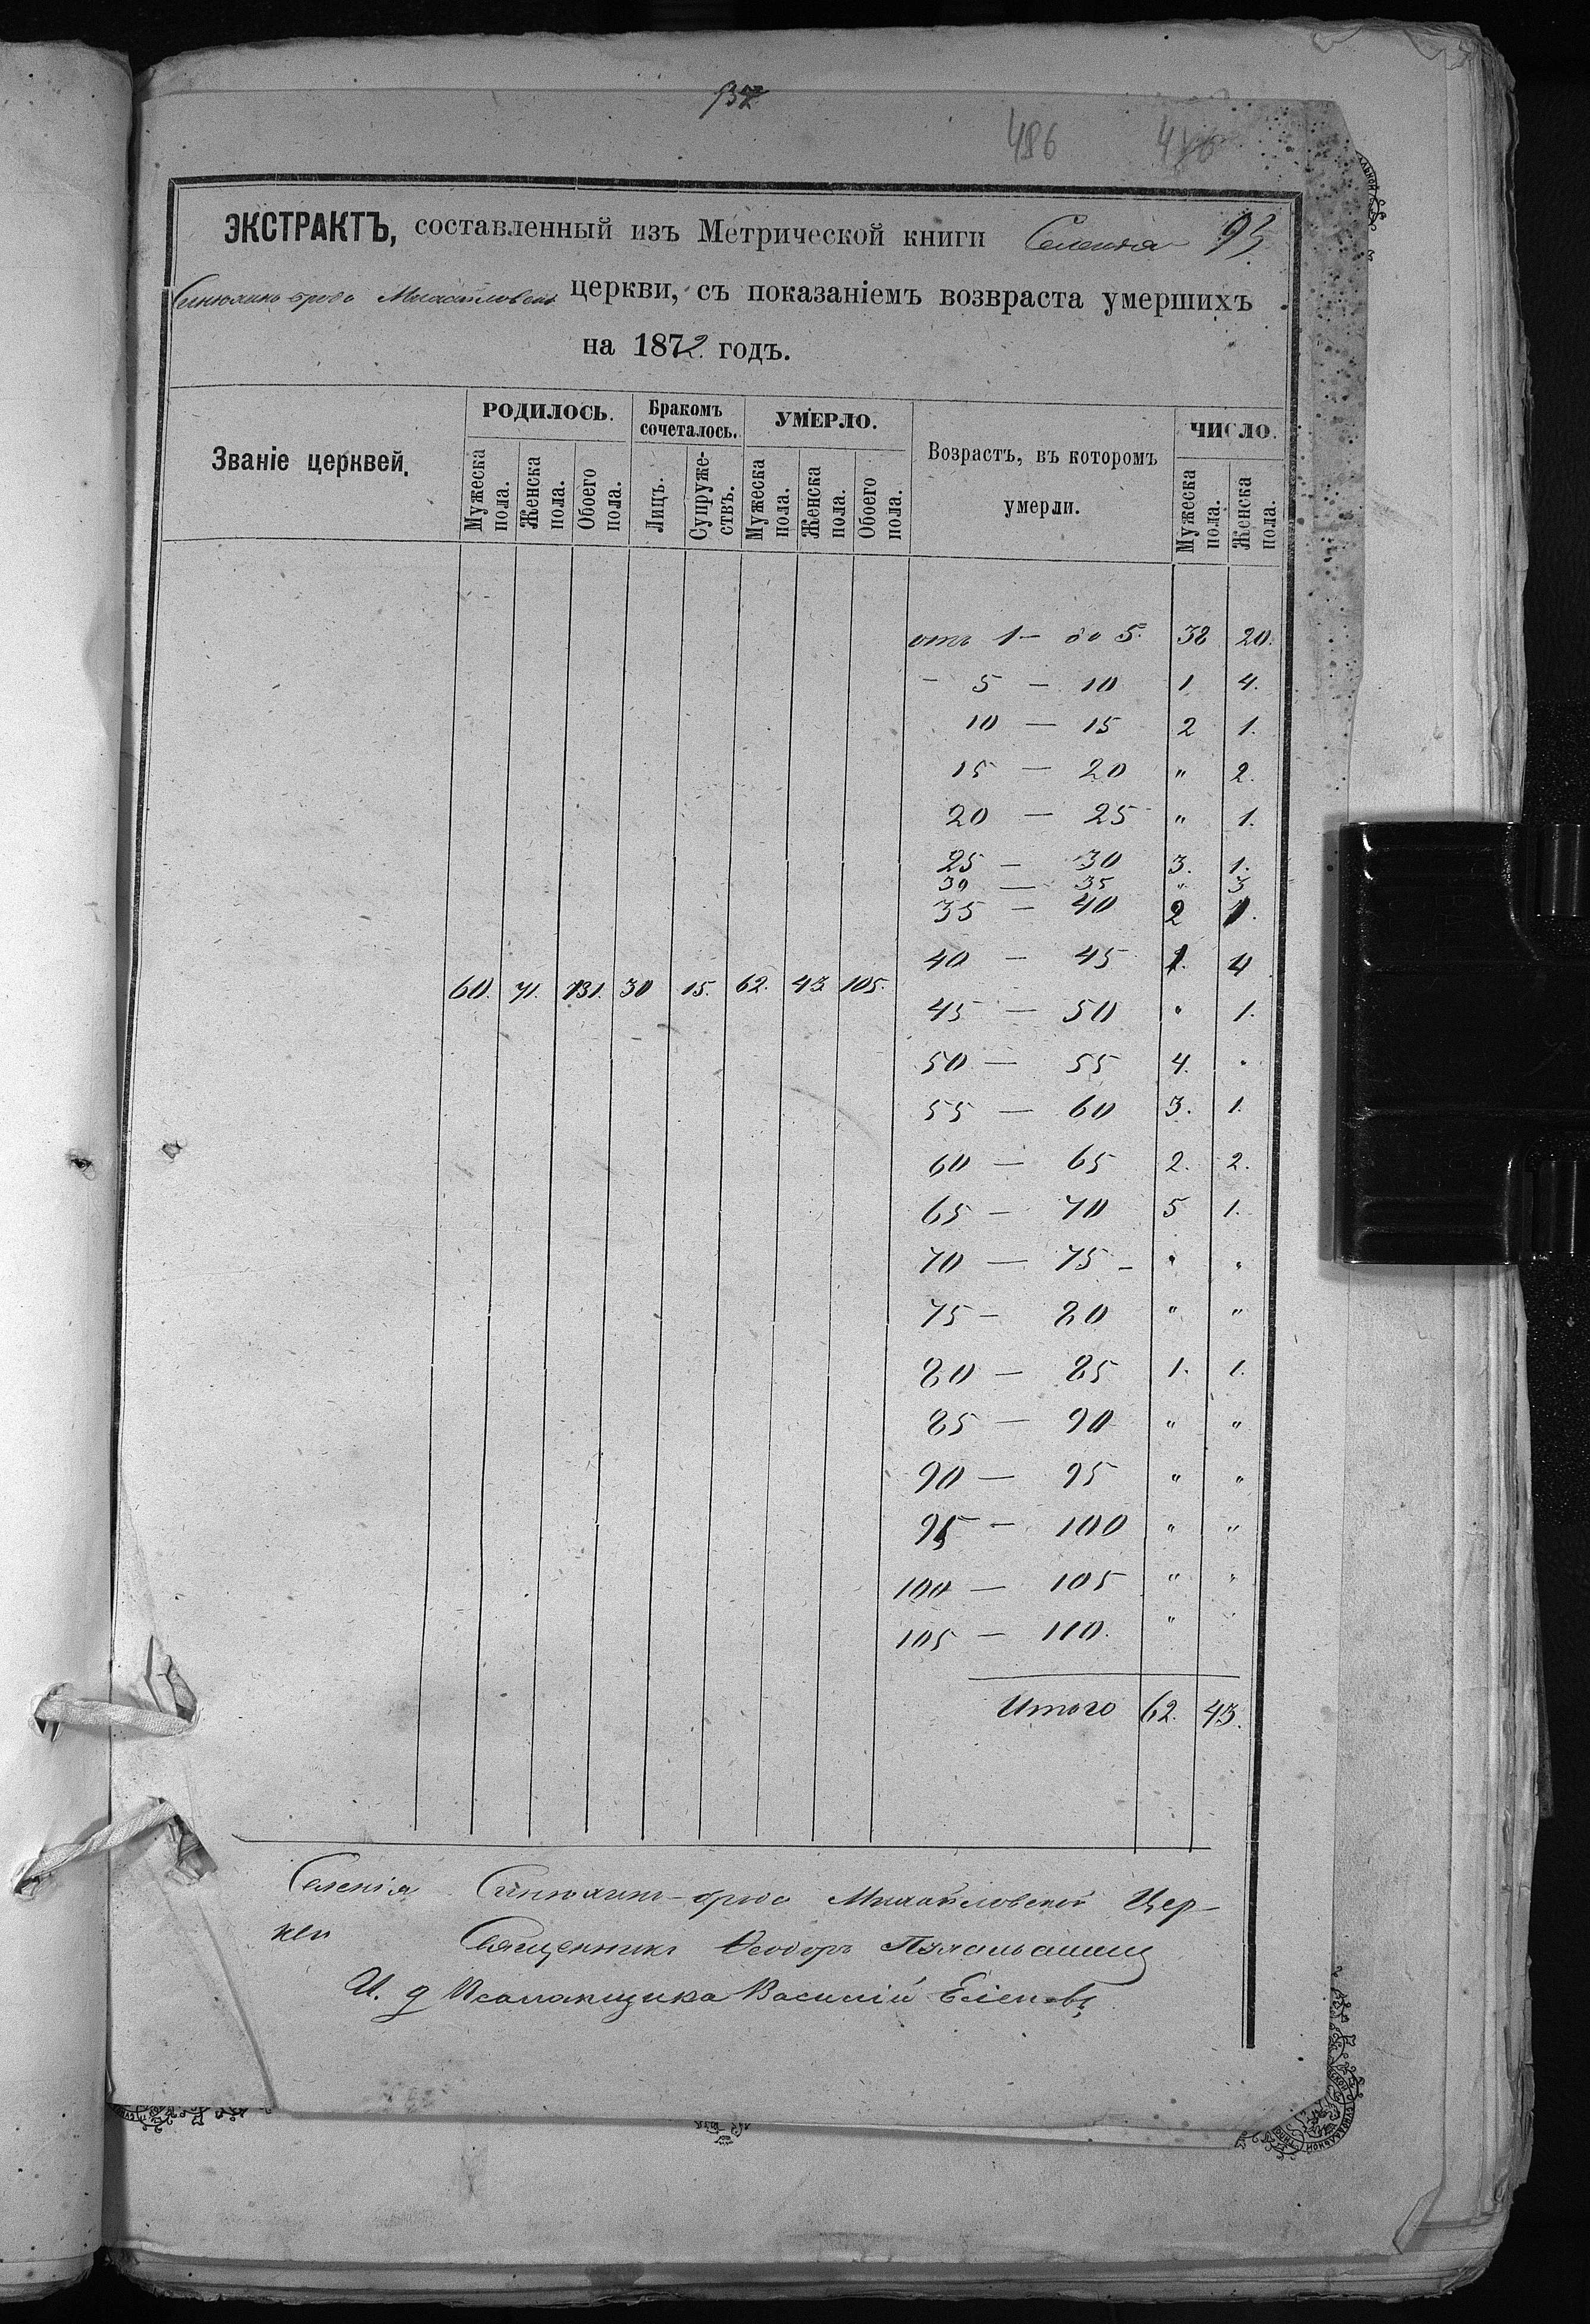 486
ЭКСТРАКТЪ, составленный изъ Метрической книги Селенія 95
Синюхино-бродо Михайловской церкви, съ показаніемъ возвраста умершихъ
на 1872. годъ.
Званіе церквей.
РОДИЛОСЬ.
Бракомъ сочеталось.
УМЕРЛО.
Возрастъ, въ которомъ умерли.
ЧИСЛО.
Мужеска пола.
Женска пола.
Обоего пола.
Лицъ.
Супружествъ.
Мужеска пола.
Женска пола.
Обоего пола.
Мужеска пола.
Женска пола.
отъ 1 — до 5. 38 20.
— 5 — 10 1 4.
10 — 15 2 1.
15 — 20 „ 2.
20 — 25 „ 1.
25 — 30 3. 1.
30 — 35 „ 3
35 — 40 2 1.
40 — 45 1. 4
60. 71. 131. 30 15. 62. 43 105.
45 — 50 „ 1.
50 — 55 4. „
55 — 60 3. 1.
60 — 65 2. 2.
65 — 70 5 1.
70 — 75 — „ „
75 — 80 „ „
80 — 85 1. 1.
85 — 90 „ „
90 — 95 „ „
95 — 100 „ „
100 — 105 „ „
105 — 110. „ „
Итого 62. 43.
Селенія Синюхино-бродо Михайловской Цер-
кви Священникъ Ѳеодоръ
И. д Псаломщика Василій